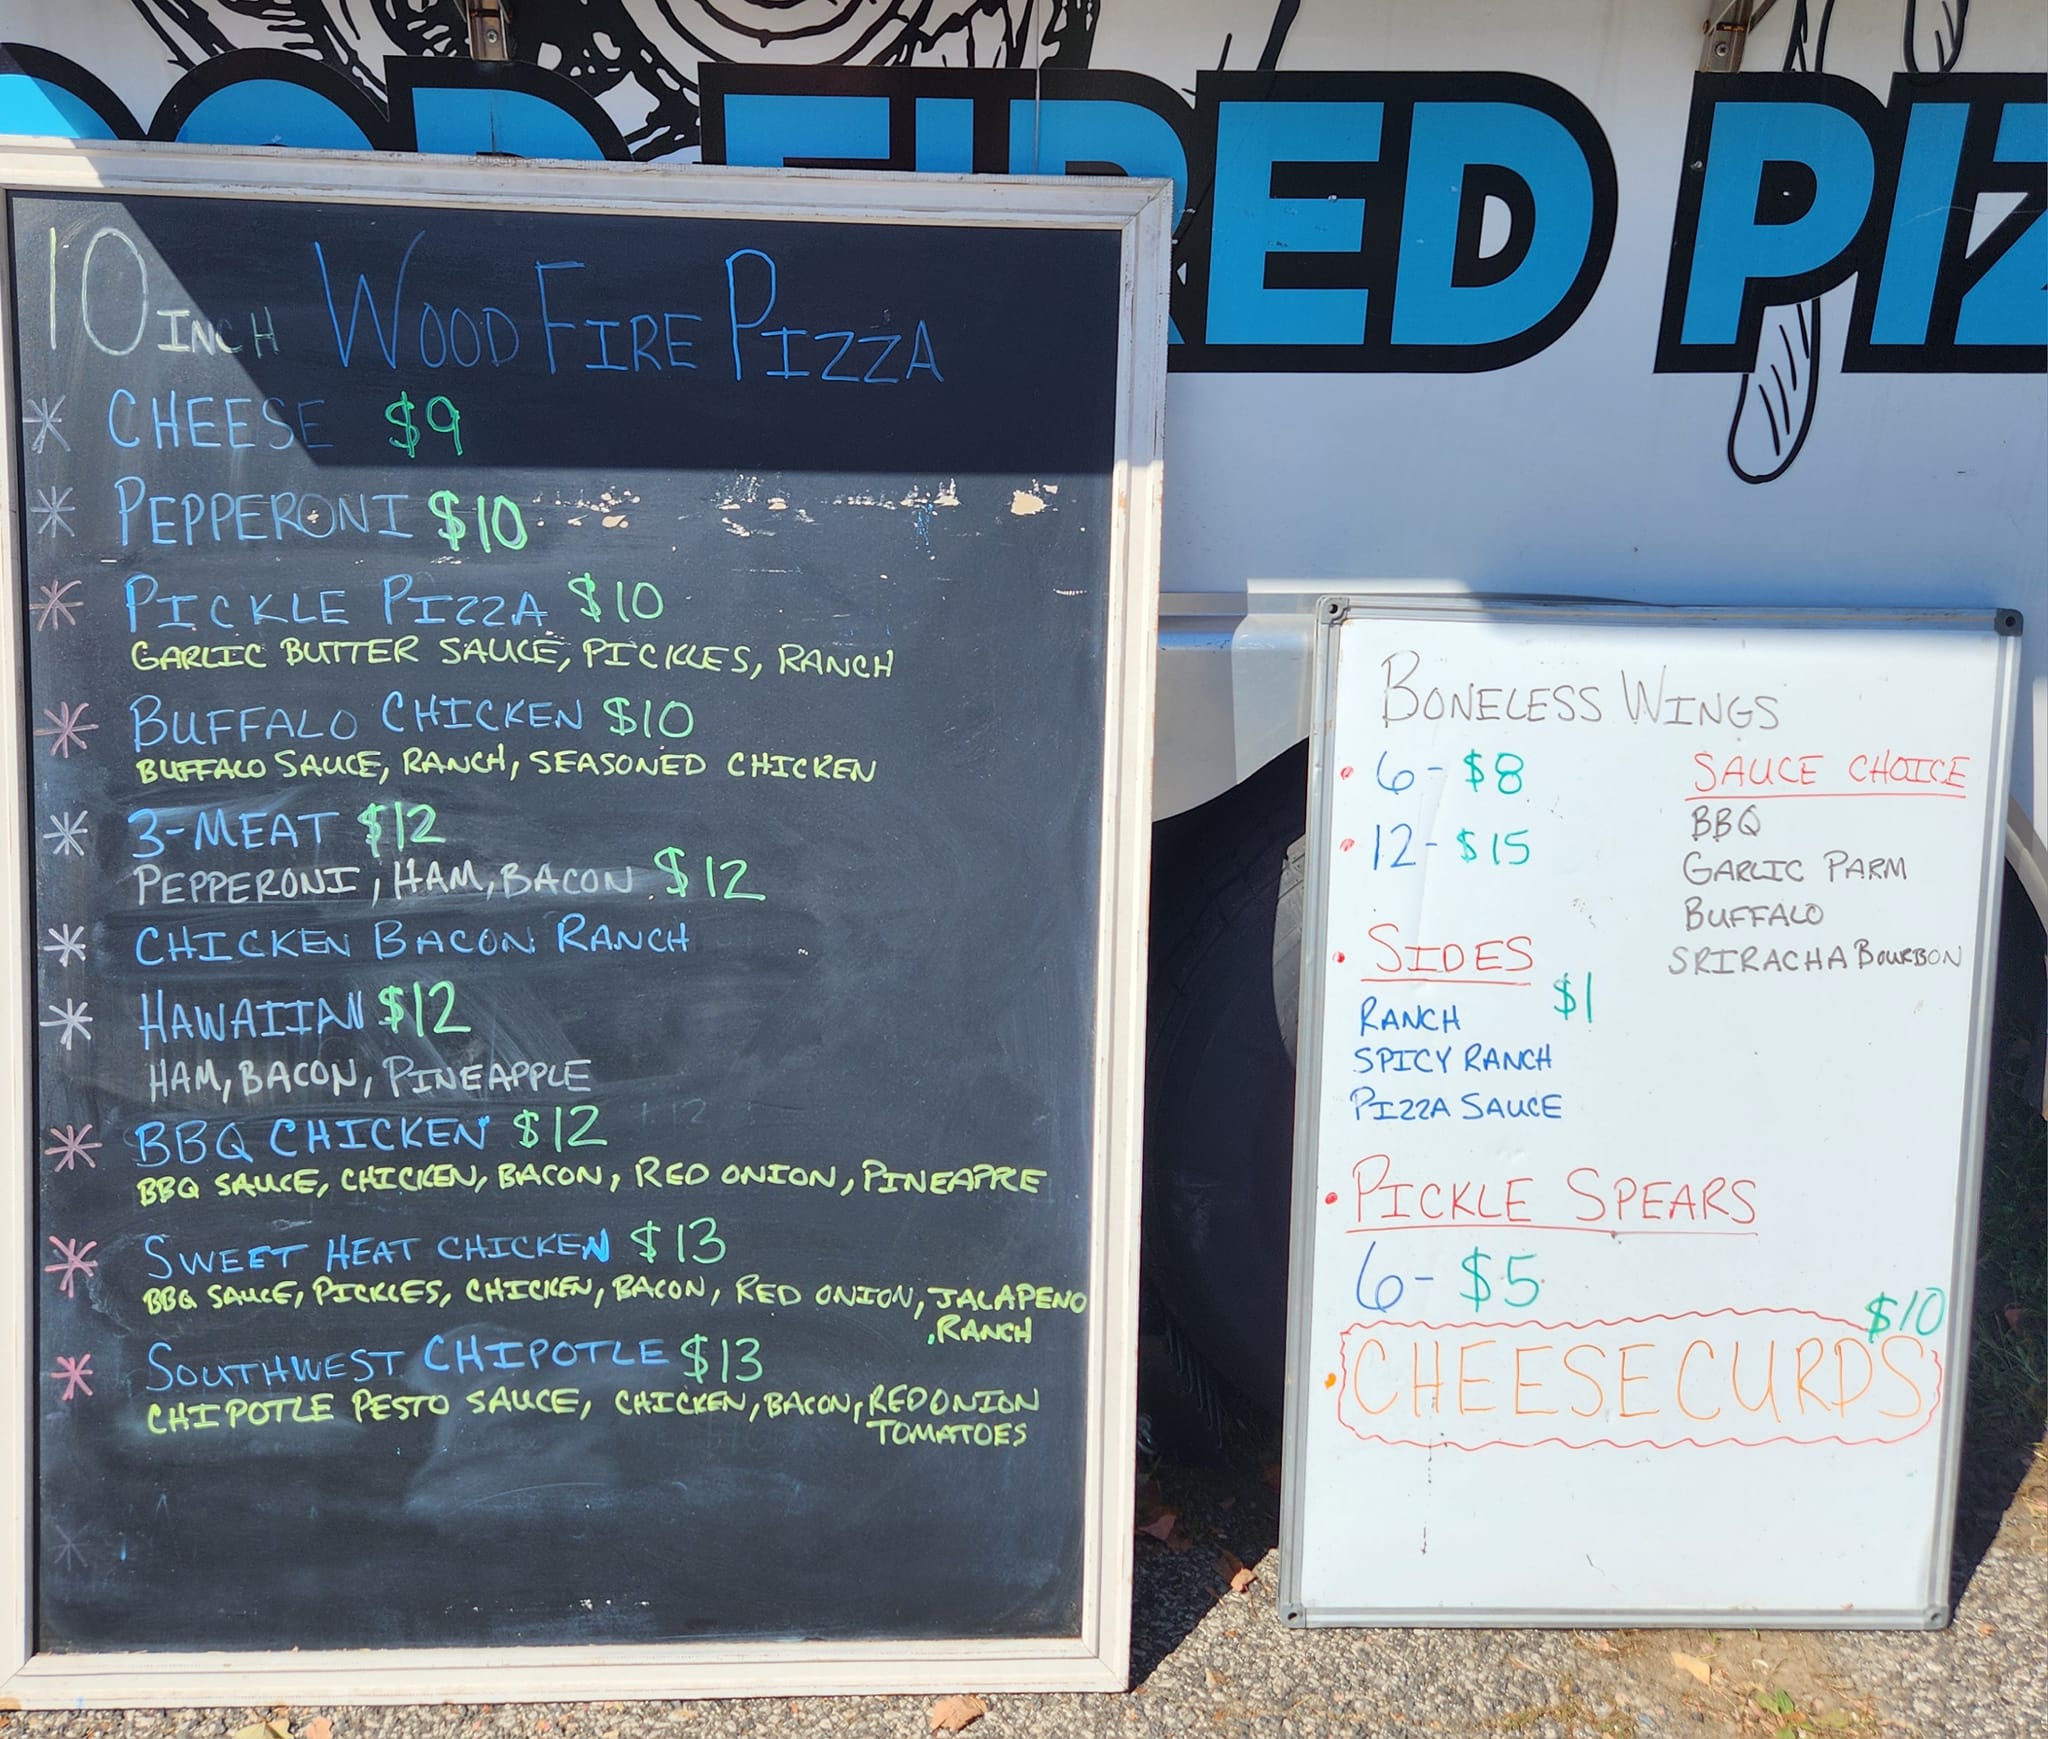 OOD FIRED PIZ
10 INCH WOOD FIRE PIZZA
* CHEESE $9
* PEPPERONI $10
* PICKLE PIZZA $10
GARLIC BUTTER SAUCE, PICKLES, RANCH
* BUFFALO CHICKEN $10
BUFFALO SAUCE, RANCH, SEASONED CHICKEN
* 3-MEAT $12
PEPPERONI, HAM, BACON $12
* CHICKEN BACON RANCH
* HAWAIIAN $12
HAM, BACON, PINEAPPLE
* BBQ CHICKEN $12
BBQ SAUCE, CHICKEN, BACON, RED ONION, PINEAPPLE
* SWEET HEAT CHICKEN $13
BBQ SAUCE, PICKLES, CHICKEN, BACON, RED ONION, JALAPENO
, RANCH
* SOUTHWEST CHIPOTLE $13
CHIPOTLE PESTO SAUCE, CHICKEN, BACON, RED ONION
TOMATOES
*
BONELESS WINGS
• 6 - $8
• 12 - $15
SAUCE CHOICE
BBQ
GARLIC PARM
BUFFALO
SRIRACHA BOURBON
• SIDES
$1
RANCH
SPICY RANCH
PIZZA SAUCE
• PICKLE SPEARS
6 - $5
$10
• CHEESE CURDS